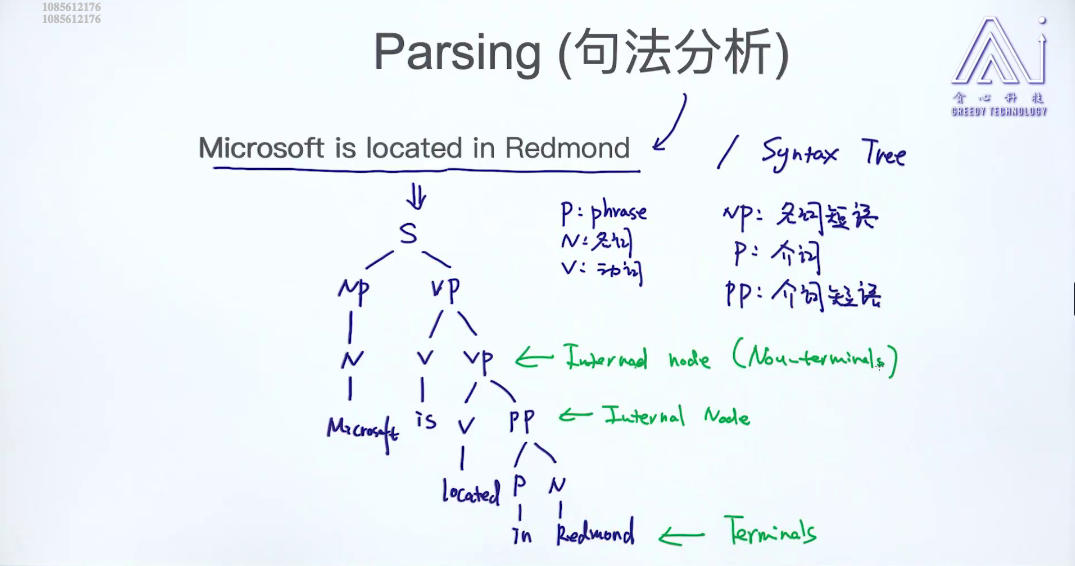 1085612176
1085612176
Parsing (句法分析)
贪心科技
GREEDY TECHNOLOGY
Microsoft is located in Redmond
/ Syntax Tree
P: phrase
N: 名词
V: 动词
NP: 名词短语
P: 介词
PP: 介词短语
S
NP VP
N V VP
← Internal node (Non-terminals)
Microsoft is V PP
← Internal Node
located P N
In Redmond
← Terminals